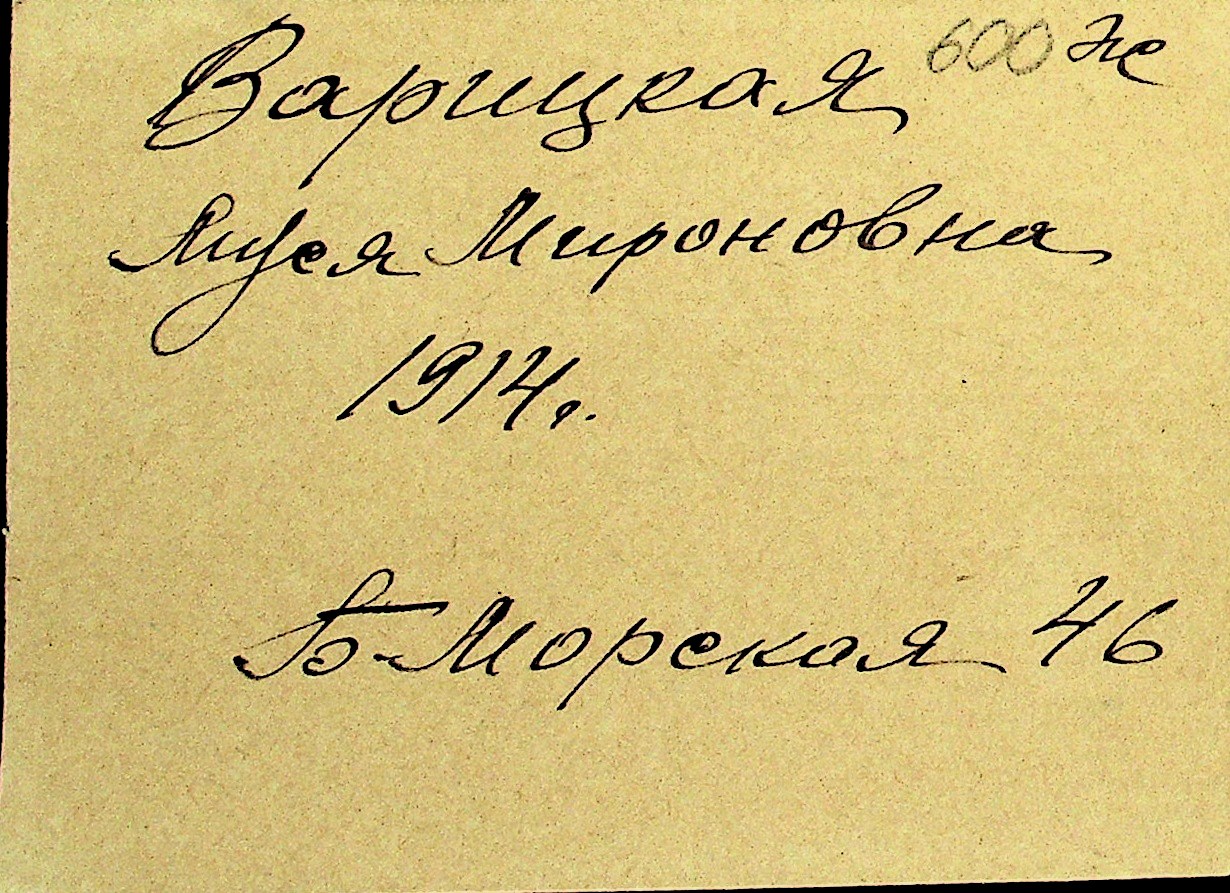 Варицкая 600 ж
Муся Мироновна
1914 г.
Б-Морская 46